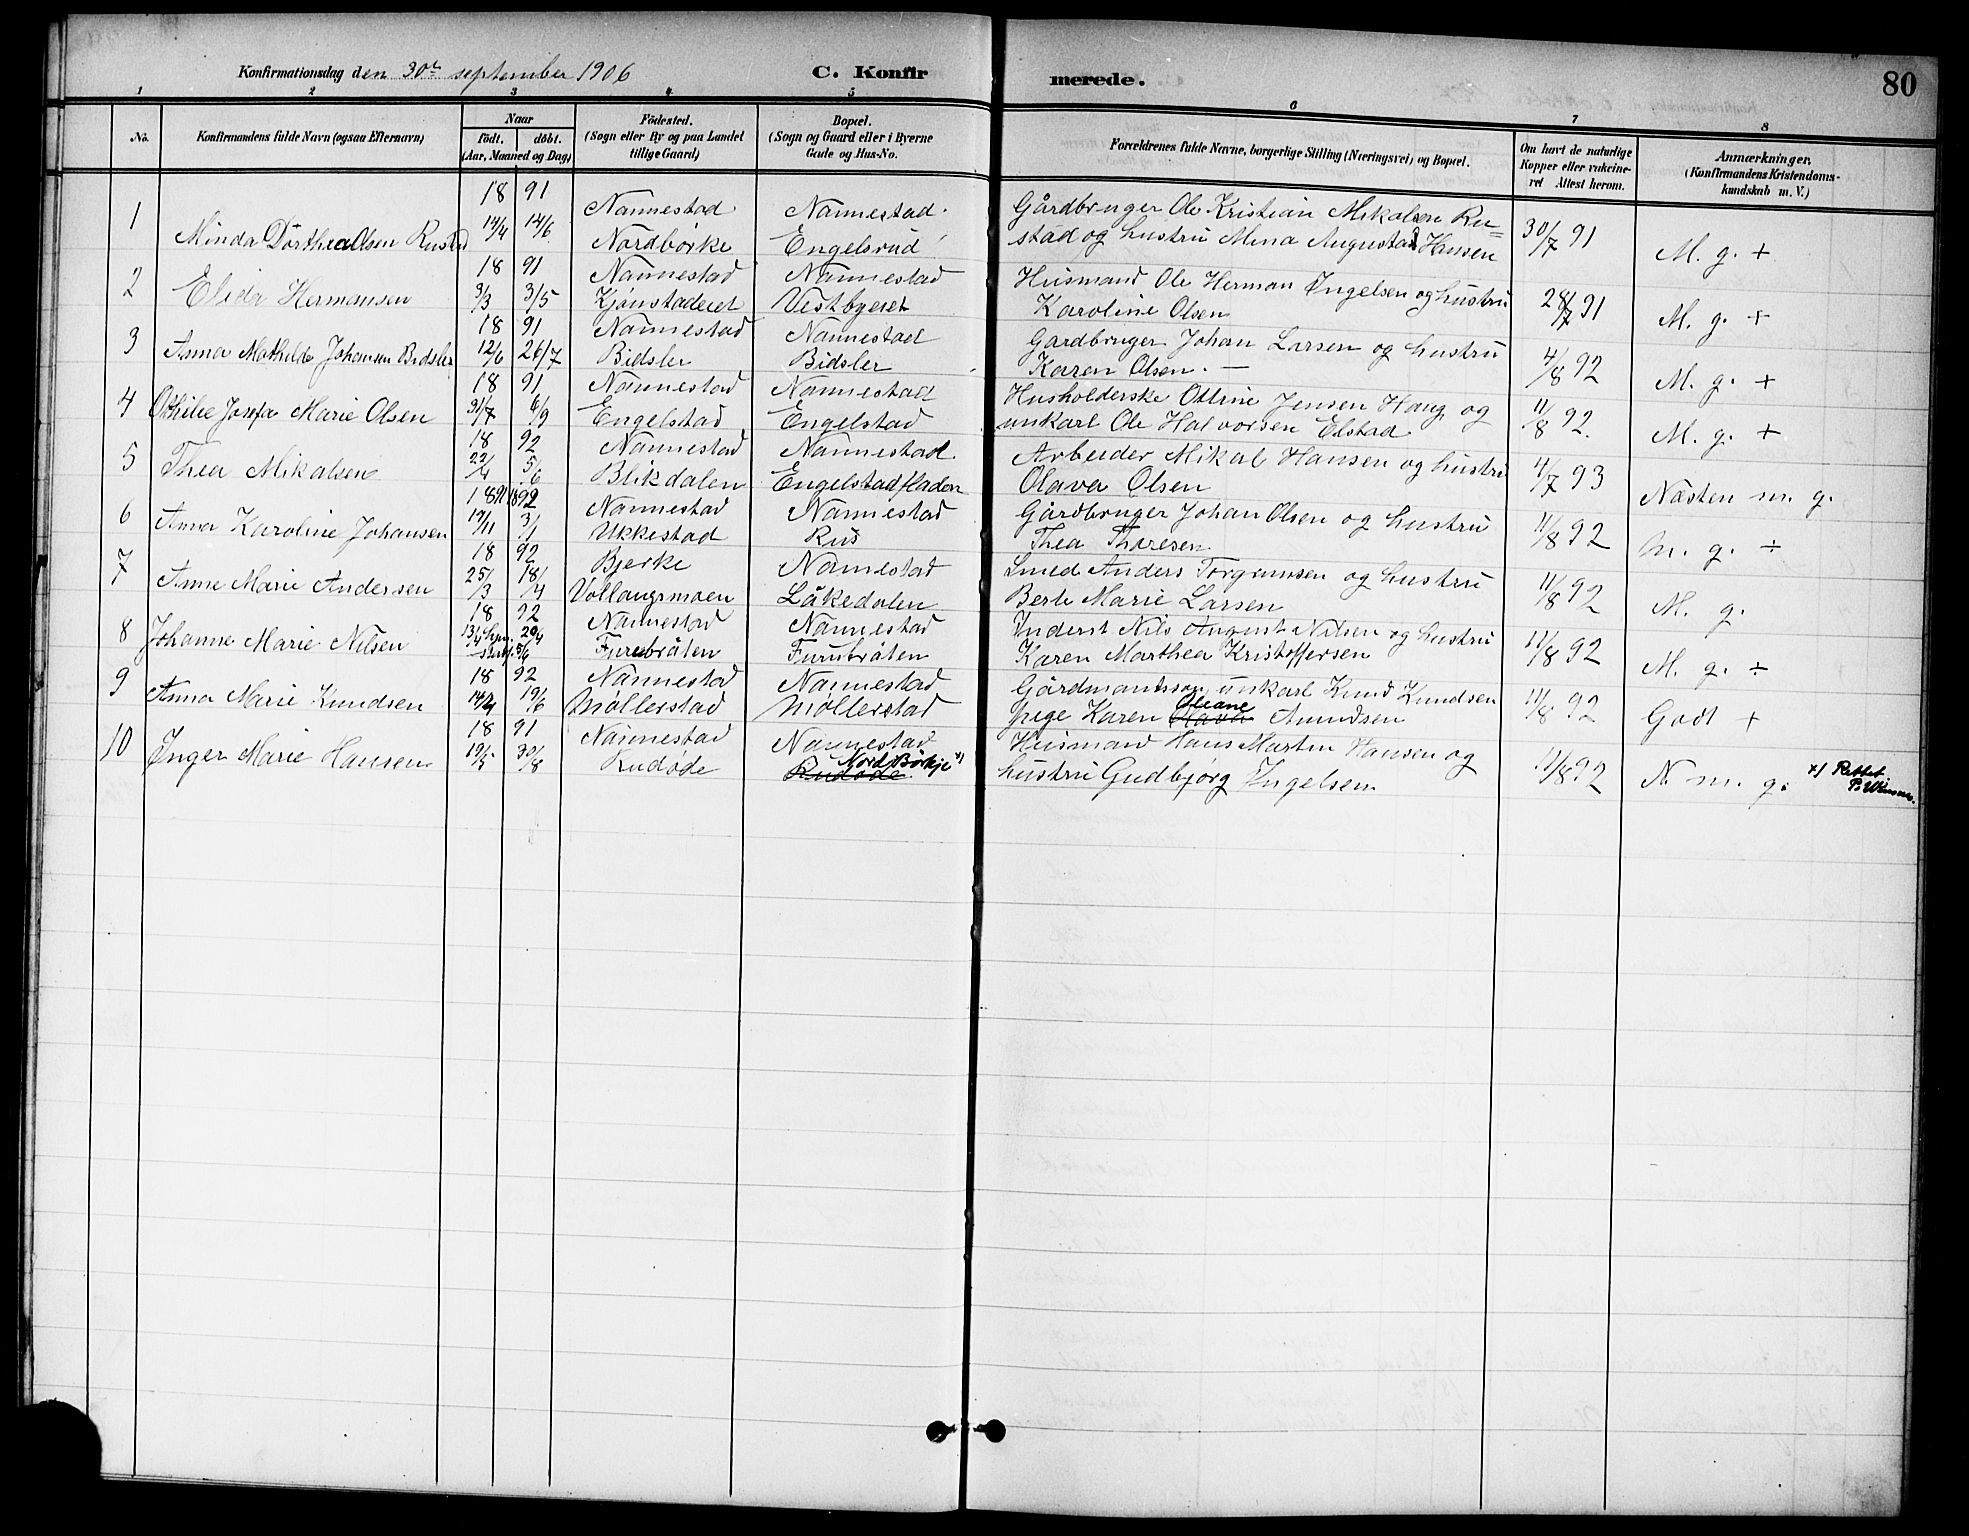 Konfirmationsdag den 30te september 1906 C. Konfirmerede. 80
1 2 3 4 5 6 7 8
No. Konfirmandens fulde Navn (ogsaa Efternavn) Naar födt. döbt. (Aar, Maaned og Dag) Födested. (Sogn eller By og paa Landet tillige Gaard) Bopæl. (Sogn og Gaard eller i Byerne Gade og Hus-No. Forældrenes fulde Navne, borgerlige Stilling (Næringsvei) og Bopæl. Om havt de naturlige Kopper eller vakcineret Attest herom. Anmærkninger, (Konfirmandens Kristendomskundskab m. V.)
1 18 91 Nannestad Nannestad. Gårdbruger Ole Kristian Mikalsen Ru=
Minda Dorthea Olsen Rustad 14/6 Nordbörke Engelsrud stad og hustru Mina Augusta Hansen 30/7 91 M. g. +
2 18 91 Nannestad Nannestad Husmand Ole Herman Ingelsen og hustru
Elida Hermansen 3/5 Kjönstadeiet Vestbyeiet Karoline Olsen 28/7 91 M. g. +
3 18 91 Nannestad Nannestad Gardbruger Johan Larsen og hustru
Anna Mathilde Johansen Bidsler 12/6 26/7 Bidsler Bidsler Karen Olsen. — 4/8 92 M. g. +
4 18 91 Nannestad Nannestad Husholderske Ottine Jensen Haug og
Othilie Josefa Marie Olsen 31/7 6/9 Engelstad Engelstad unkarl Ole Halvorsen Elstad 11/8 92. M. g. +
5 18 92 Nannestad Nannestad. Arbeider Mikal Hansen og hustru
Thea Mikalsen 22/4 5/6 Blikdalen Engelstadfladen Olava Olsen 4/7 93 Næsten m. g.
6 1891 1892 Nannestad Nannestad Gårdbruger Johan Olsen og hustru
Anna Karoline Johansen 3/1 Ukkestad Rus Thea Thoresen 11/8 92 M. g. ÷
7 18 92 Bjerke Nannestad Smed Anders Torgrimsen og hustru
Anne Marie Andersen 25/3 18/4 Vollaugsmoen Låkedalen Berte Marie Larsen 11/8 92 M. g.
8 18 92 Nannestad Nannestad Inderst Nils August Nilsen og hustru
Johanne Marie Nilsen 13/4 hjm. 20/4 stadf. 5/6 Furubråten Furubråten Karen Marthea Kristoffersen 11/8 92 M. g. ÷
9 18 92 Nannestad Nannestad Gårdmandssøn unkarl Knud Knudsen
Anna Marie Knudsen 14/4 19/6 Møllerstad Møllerstad pige Karen Olava Oliane Amundsen 11/8 92 Godt +
10 18 91 Nannestad Nannestad Husmand Hans Martin Hansen og
Inger Marie Hansen 30/8 Rudøde Rudøde Nord Börkje x) hustru Gudbjørg Ingelsen 11/8 92 N. m. g. x) Rettet